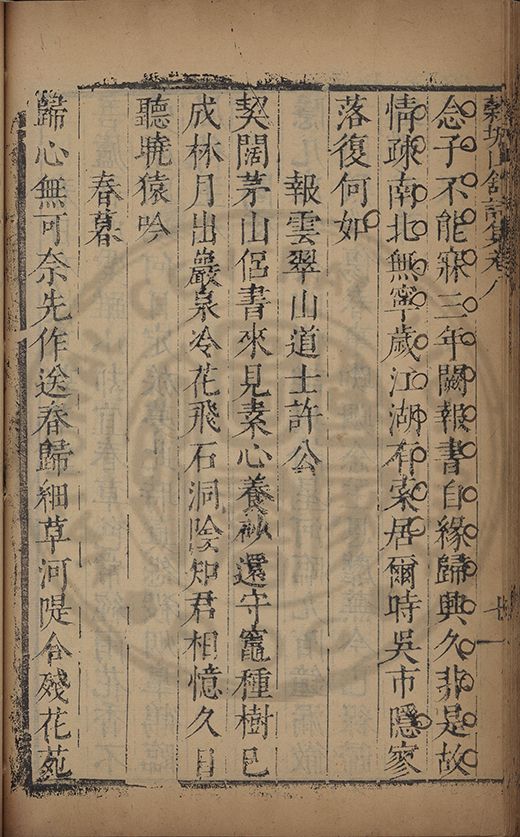 山舘詩集卷八
廿一
念子不能寐三年闕報書自緣歸興久非是故
情疎南北無寧歲江湖有索居爾時吳市隱寥
落復何如
報雲翠山道士許公
契闊茅山侶書來見素心養砂還守竈種樹已
成林月出巖泉冷花飛石洞陰知君相憶久日
聽曉猿吟
春暮
歸心無可奈先作送春歸細草河隄合殘花苑